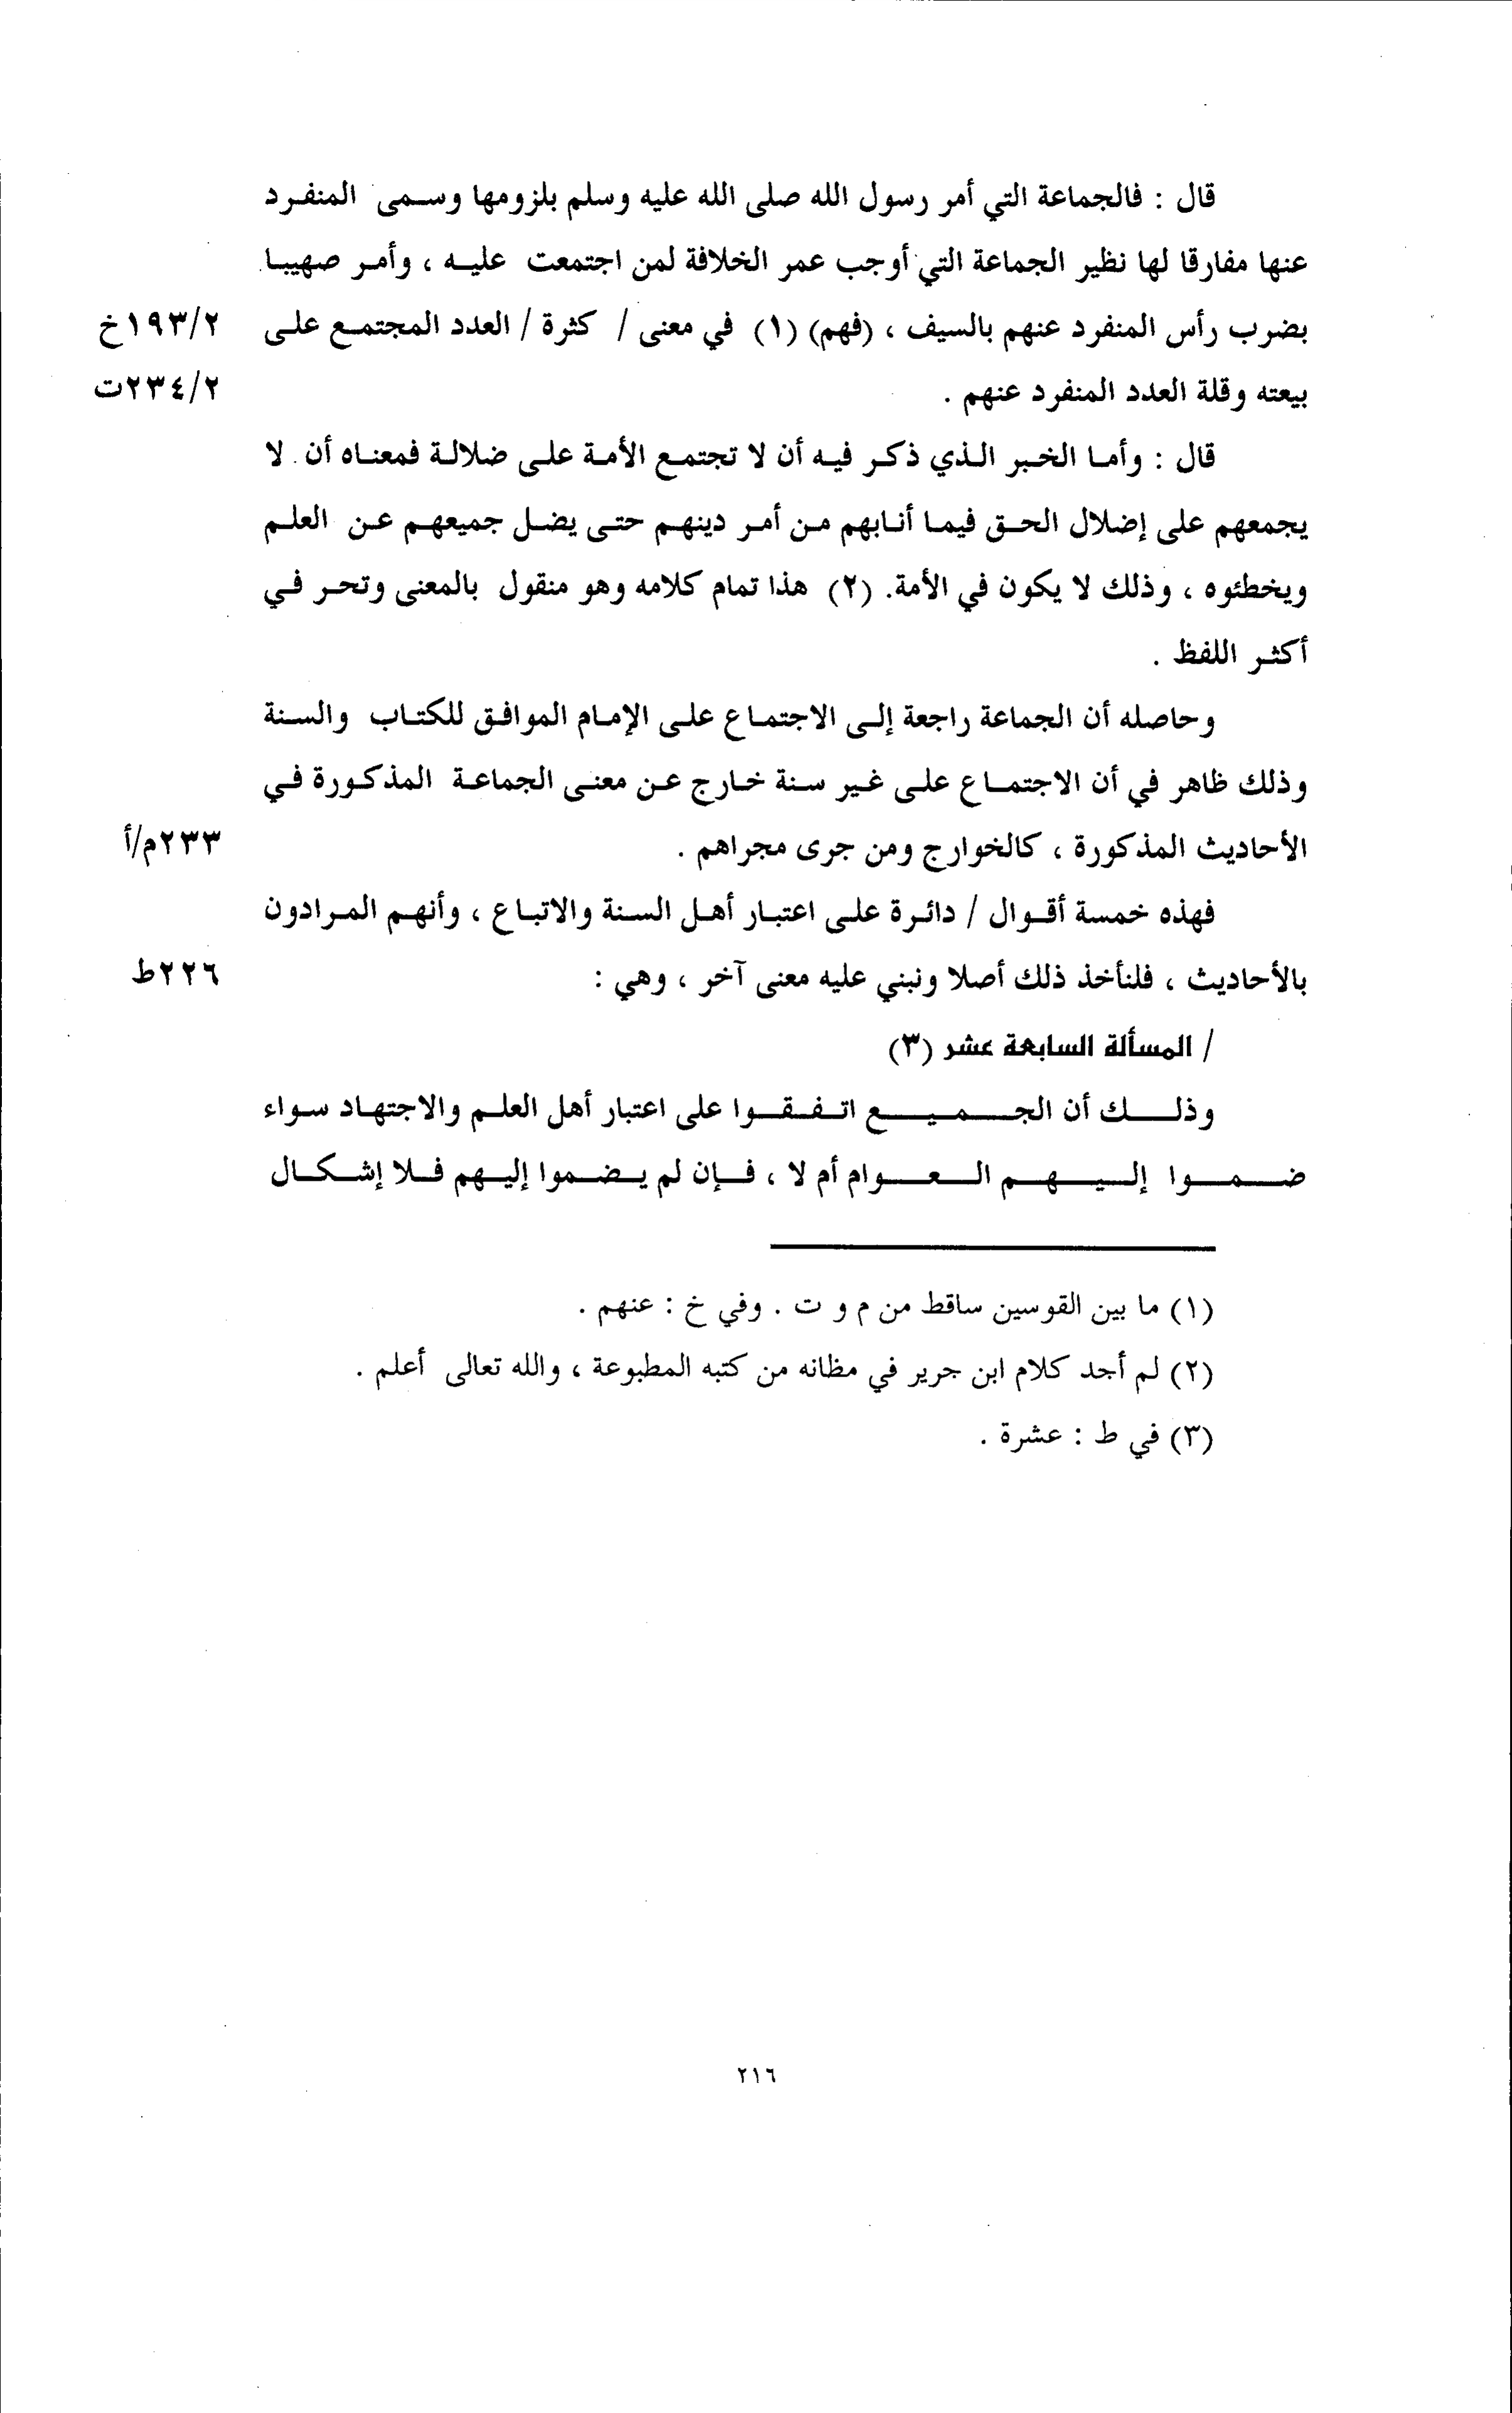 قال : فالجماعة التي أمر رسول الله صلى الله عليه وسلم بلزومها وسمى المنفرد
عنها مفارقا لها نظير الجماعة التي أوجب عمر الخلافة لمن اجتمعت عليه ، وأمر صهيبا
بضرب رأس المنفرد عنهم بالسيف ، (فهم) (١) في معنى / كثرة / العدد المجتمع على ٢/١٩٣خ
بيعته وقلة العدد المنفرد عنهم . ٢/٢٣٤ت
قال : وأما الخبر الذي ذكر فيه أن لا تجتمع الأمة على ضلالة فمعناه أن لا
يجمعهم على إضلال الحق فيما أنابهم من أمر دينهم حتى يضل جميعهم عن العلم
ويخطئوه ، وذلك لا يكون في الأمة. (٢) هذا تمام كلامه وهو منقول بالمعنى وتحر في
أكثر اللفظ .
وحاصله أن الجماعة راجعة إلى الاجتماع على الإمام الموافق للكتاب والسنة
وذلك ظاهر في أن الاجتماع على غير سنة خارج عن معنى الجماعة المذكورة في
الأحاديث المذكورة ، كالخوارج ومن جرى مجراهم . ٢٣٣م/أ
فهذه خمسة أقوال / دائرة على اعتبار أهل السنة والاتباع ، وأنهم المرادون
بالأحاديث ، فلنأخذ ذلك أصلا ونبني عليه معنى آخر ، وهي : ٢٢٦ط
/ المسألة السابعة عشر (٣)
وذلك أن الجميع اتفقوا على اعتبار أهل العلم والاجتهاد سواء
ضموا إليهم العوام أم لا ، فإن لم يضموا إليهم فلا إشكال
(١) ما بين القوسين ساقط من م و ت . وفي خ : عنهم .
(٢) لم أجد كلام ابن جرير في مظانه من كتبه المطبوعة ، والله تعالى أعلم .
(٣) في ط : عشرة .
٢١٦